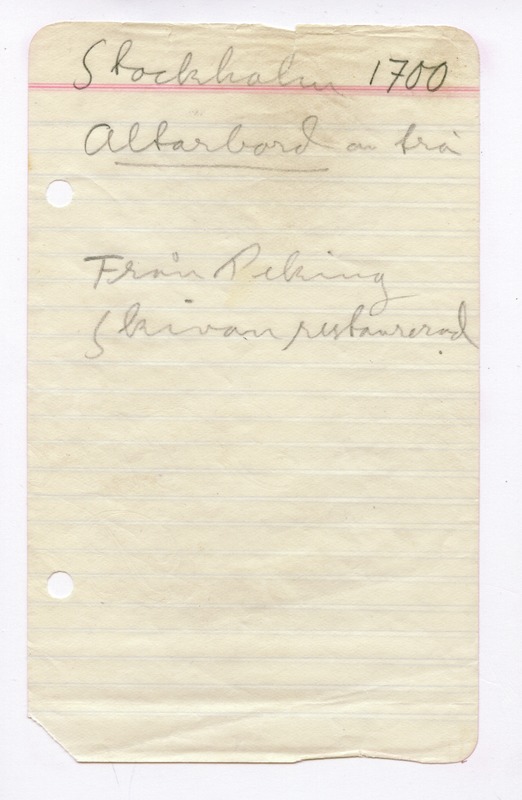 Stockholm 1700
Altarbord av trä
Från Peking
Skivan restaurerad